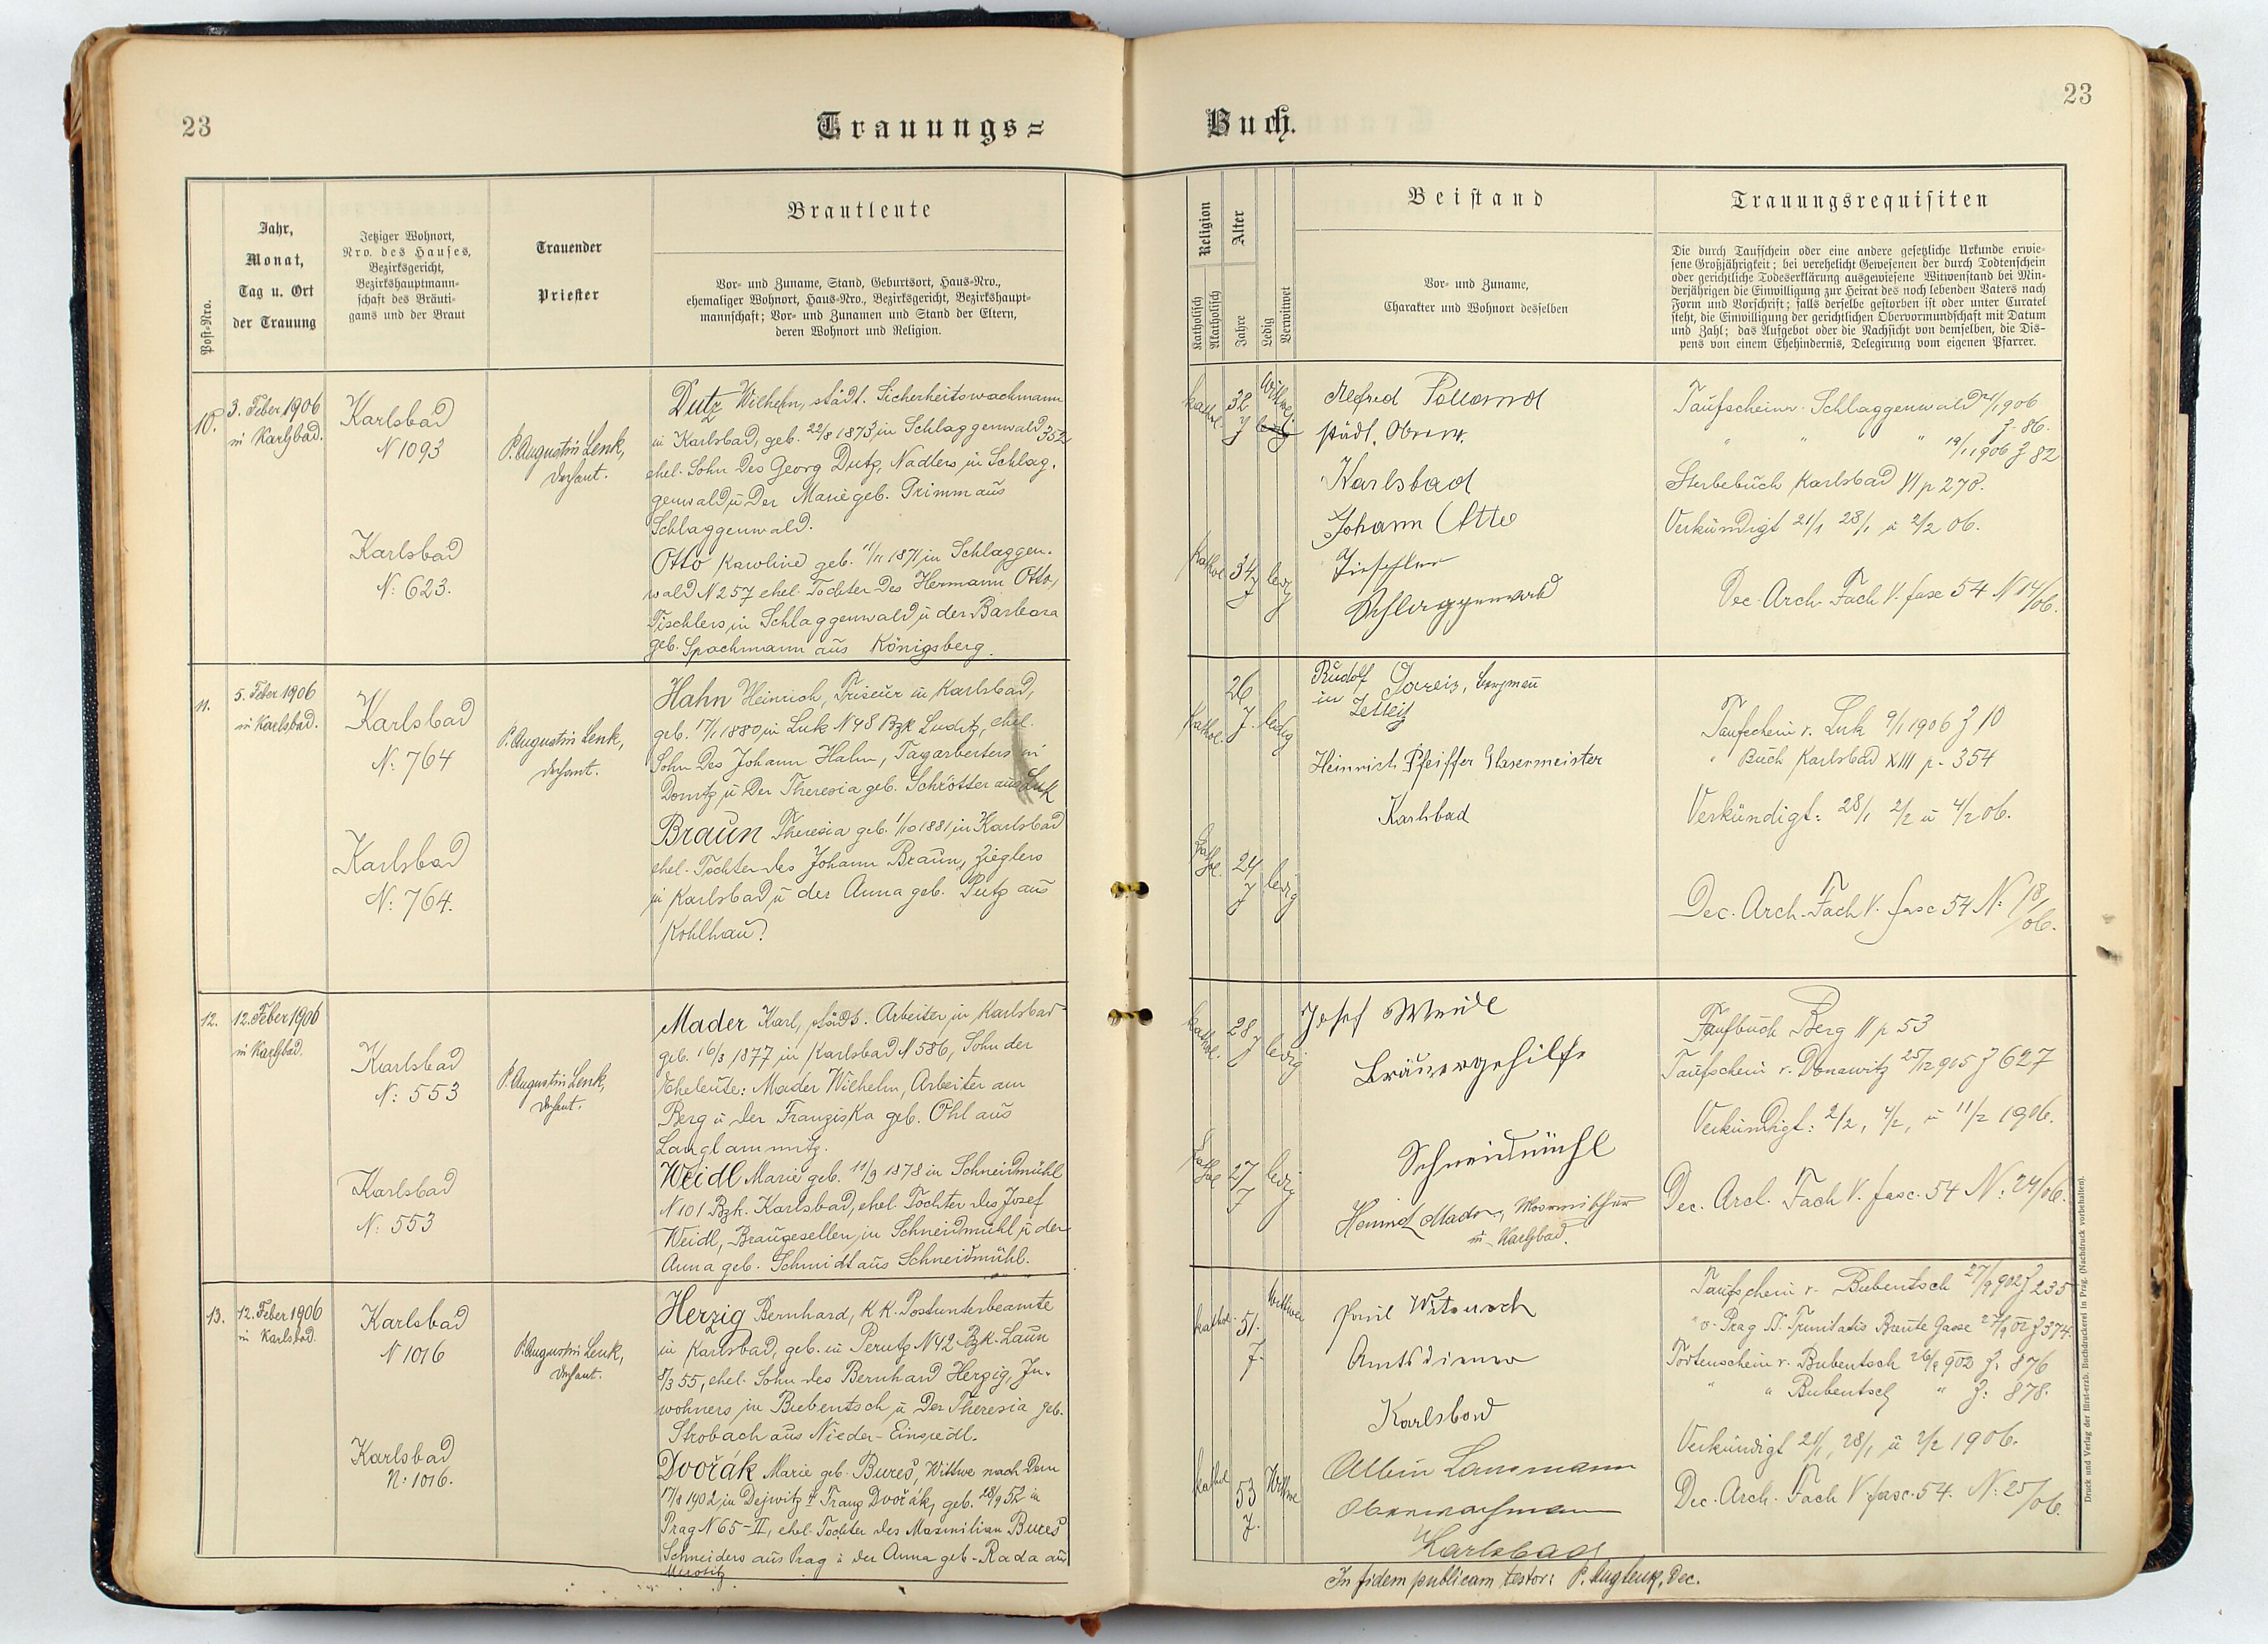 23
Trauungs=
Jahr,
Monat,
Tag u. Ort
der Trauung
Post-Nro.
Jetziger Wohnort,
Nro. des Hauses,
Bezirksgericht,
Bezirkshauptmann-
schaft des Bräuti-
gams und der Braut
Trauender
Priester
Brautleute
Vor- und Zuname, Stand, Geburtsort, Haus-Nro.,
ehemaliger Wohnort, Haus-Nro., Bezirksgericht, Bezirkshaupt-
mannschaft; Vor- und Zunamen und Stand der Eltern,
deren Wohnort und Religion.
10.
3. Feber 1906
in Karlsbad.
Karlsbad
N 1093
Karlsbad
N: 623.
P. Augustin Lenk,
Dechant.
Dutz Wilhelm, städt. Sicherheitswachmann
in Karlsbad, geb. 22/8 1873 in Schlaggenwald 352
ehel. Sohn des Georg Dutz, Nadlers in Schlag.
genwald u der Marie geb. Grimm aus
Schlaggenwald.
Otto Karoline geb. 11/11 1871 in Schlaggen.
wald N 257 ehel. Tochter des Hermann Otto,
Tischlers in Schlaggenwald u der Barbara
geb. Spachmann aus Königsberg.
11.
5. Feber 1906
in Karlsbad.
Karlsbad
N: 764
Karlsbad
N: 764.
P. Augustin Lenk,
Dechant.
Hahn Heinrich, Friseur in Karlsbad,
geb. 17/1 1880 in Luk N 48 Bzk Luditz, ehel.
Sohn des Johann Hahn, Tagarbeiters in
Donitz u der Theresia geb. Schrötter aus Luk
Braun Theresia geb. 1/10 1881 in Karlsbad
ehel. Tochter des Johann Braun, Zieglers
in Karlsbad u der Anna geb. Putz aus
Kohlhau.
12.
12. Feber 1906
in Karlsbad.
Karlsbad
N: 553
Karlsbad
N: 553
P. Augustin Lenk,
Dechant.
Mader Karl, städt. Arbeiter in Karlsbad
geb. 16/3 1877 in Karlsbad N 586, Sohn der
Eheleute: Mader Wilhelm, Arbeiter am
Berg u der Franziska geb. Öhl aus
Langlammitz.
Weidl Marie geb. 11/9 1878 in Schneidmühl
N 101 Bzk. Karlsbad, ehel. Tochter des Josef
Weidl, Braugesellen in Schneidmühl u der
Anna geb. Schmidt aus Schneidmühl.
13.
12. Feber 1906
in Karlsbad.
Karlsbad
N 1016
Karlsbad
N: 1016.
P. Augustin Lenk,
Dechant.
Herzig Bernhard, K.K. Postunterbeamte
in Karlsbad, geb. in Perutz N 42 Bzk. Laun
8/3 55, ehel. Sohn des Bernhard Herzig, In-
wohners in Bubentsch u der Theresia geb.
Strobach aus Nieder-Einsiedl.
Dvořák Marie geb. Bureš, Wittwe nach dem
17/8 1902 in Dejwitz † Franz Dvořák, geb. 28/9 52 in
Prag N 65-II, ehel. Tochter des Maximilian Bureš
Schneiders aus Prag u der Anna geb. Rada aus
Mirotitz
23
Buch.
Religion
Katholisch
Akatholisch
Alter
Jahre
Ledig
Verwitwet
Beistand
Vor- und Zuname,
Charakter und Wohnort desselben
Trauungsrequisiten
Die durch Taufschein oder eine andere gesetzliche Urkunde erwie-
sene Großjährigkeit; bei verehelicht Gewesenen der durch Todtenschein
oder gerichtliche Todeserklärung ausgewiesene Witwenstand bei Min-
derjährigen die Einwilligung zur Heirat des noch lebenden Vaters nach
Form und Vorschrift; falls derselbe gestorben ist oder unter Curatel
steht, die Einwilligung der gerichtlichen Obervormundschaft mit Datum
und Zahl; das Aufgebot oder die Nachsicht von demselben, die Dis-
pens von einem Ehehindernis, Delegirung vom eigenen Pfarrer.
kathol.
32
J
Wittwer
kathol
34
J
ledig
Alfred
städt.
Karlsbad
Johann Otto
Tischler
Schlaggenwald
Taufschein v. Schlaggenwald 21/1 906
J. 86.
" " " 19/1 1906 J 82
Sterbebuch Karlsbad VI p 278.
Verkündigt 21/1 28/1 u 2/2 06.
Dec. Arch. Fach V. fasc 54 N 14/06.
kathol.
26
J.
ledig
kathol.
24
J
ledig
Rudolf Gareis, Bergmann
in Zettlitz
Heinrich Pfeiffer Glasermeister
Karlsbad
Taufschein v. Luk 9/1 1906 J 10
" Buch Karlsbad XIII p. 354
Verkündigt: 28/1 2/2 u 4/2 06.
Dec. Arch. Fach V. fasc 54 N: 18/06.
kathol.
28
J
ledig
kathol
27
J
ledig
Josef Weidl
Brauergehilfe
Schneidmühl
Heinrich Mader,
in Karlsbad.
Taufbuch Berg II p 53
Taufschein v. Donawitz 25/12 905 J 627
Verkündigt: 2/2, 4/2, u 11/2 1906.
Dec. Arch. Fach V. fasc. 54 N: 24/06.
kathol.
51.
J.
Wittwer
kathol
53
J.
Wittwe
Amtsdiener
Karlsbad
Albin Lansmann
Oberwachmann
Karlsbad
Taufschein v. Bubentsch 27/9 902 J 235
" v. Prag St. Trinitatis Breite Gasse 27/9 02 J 374.
Todtenschein v. Bubentsch 26/9 902 J. 876
" " Bubentsch " J: 878.
Verkündigt 21/1, 28/1 u 2/2 1906.
Dec. Arch. Fach V. fasc. 54. N: 25/06.
In fidem publicam testor: P. Aug Lenk, Dec.
Druck und Verlag der fürst-erzb. Buchdruckerei in Prag. (Nachdruck vorbehalten).